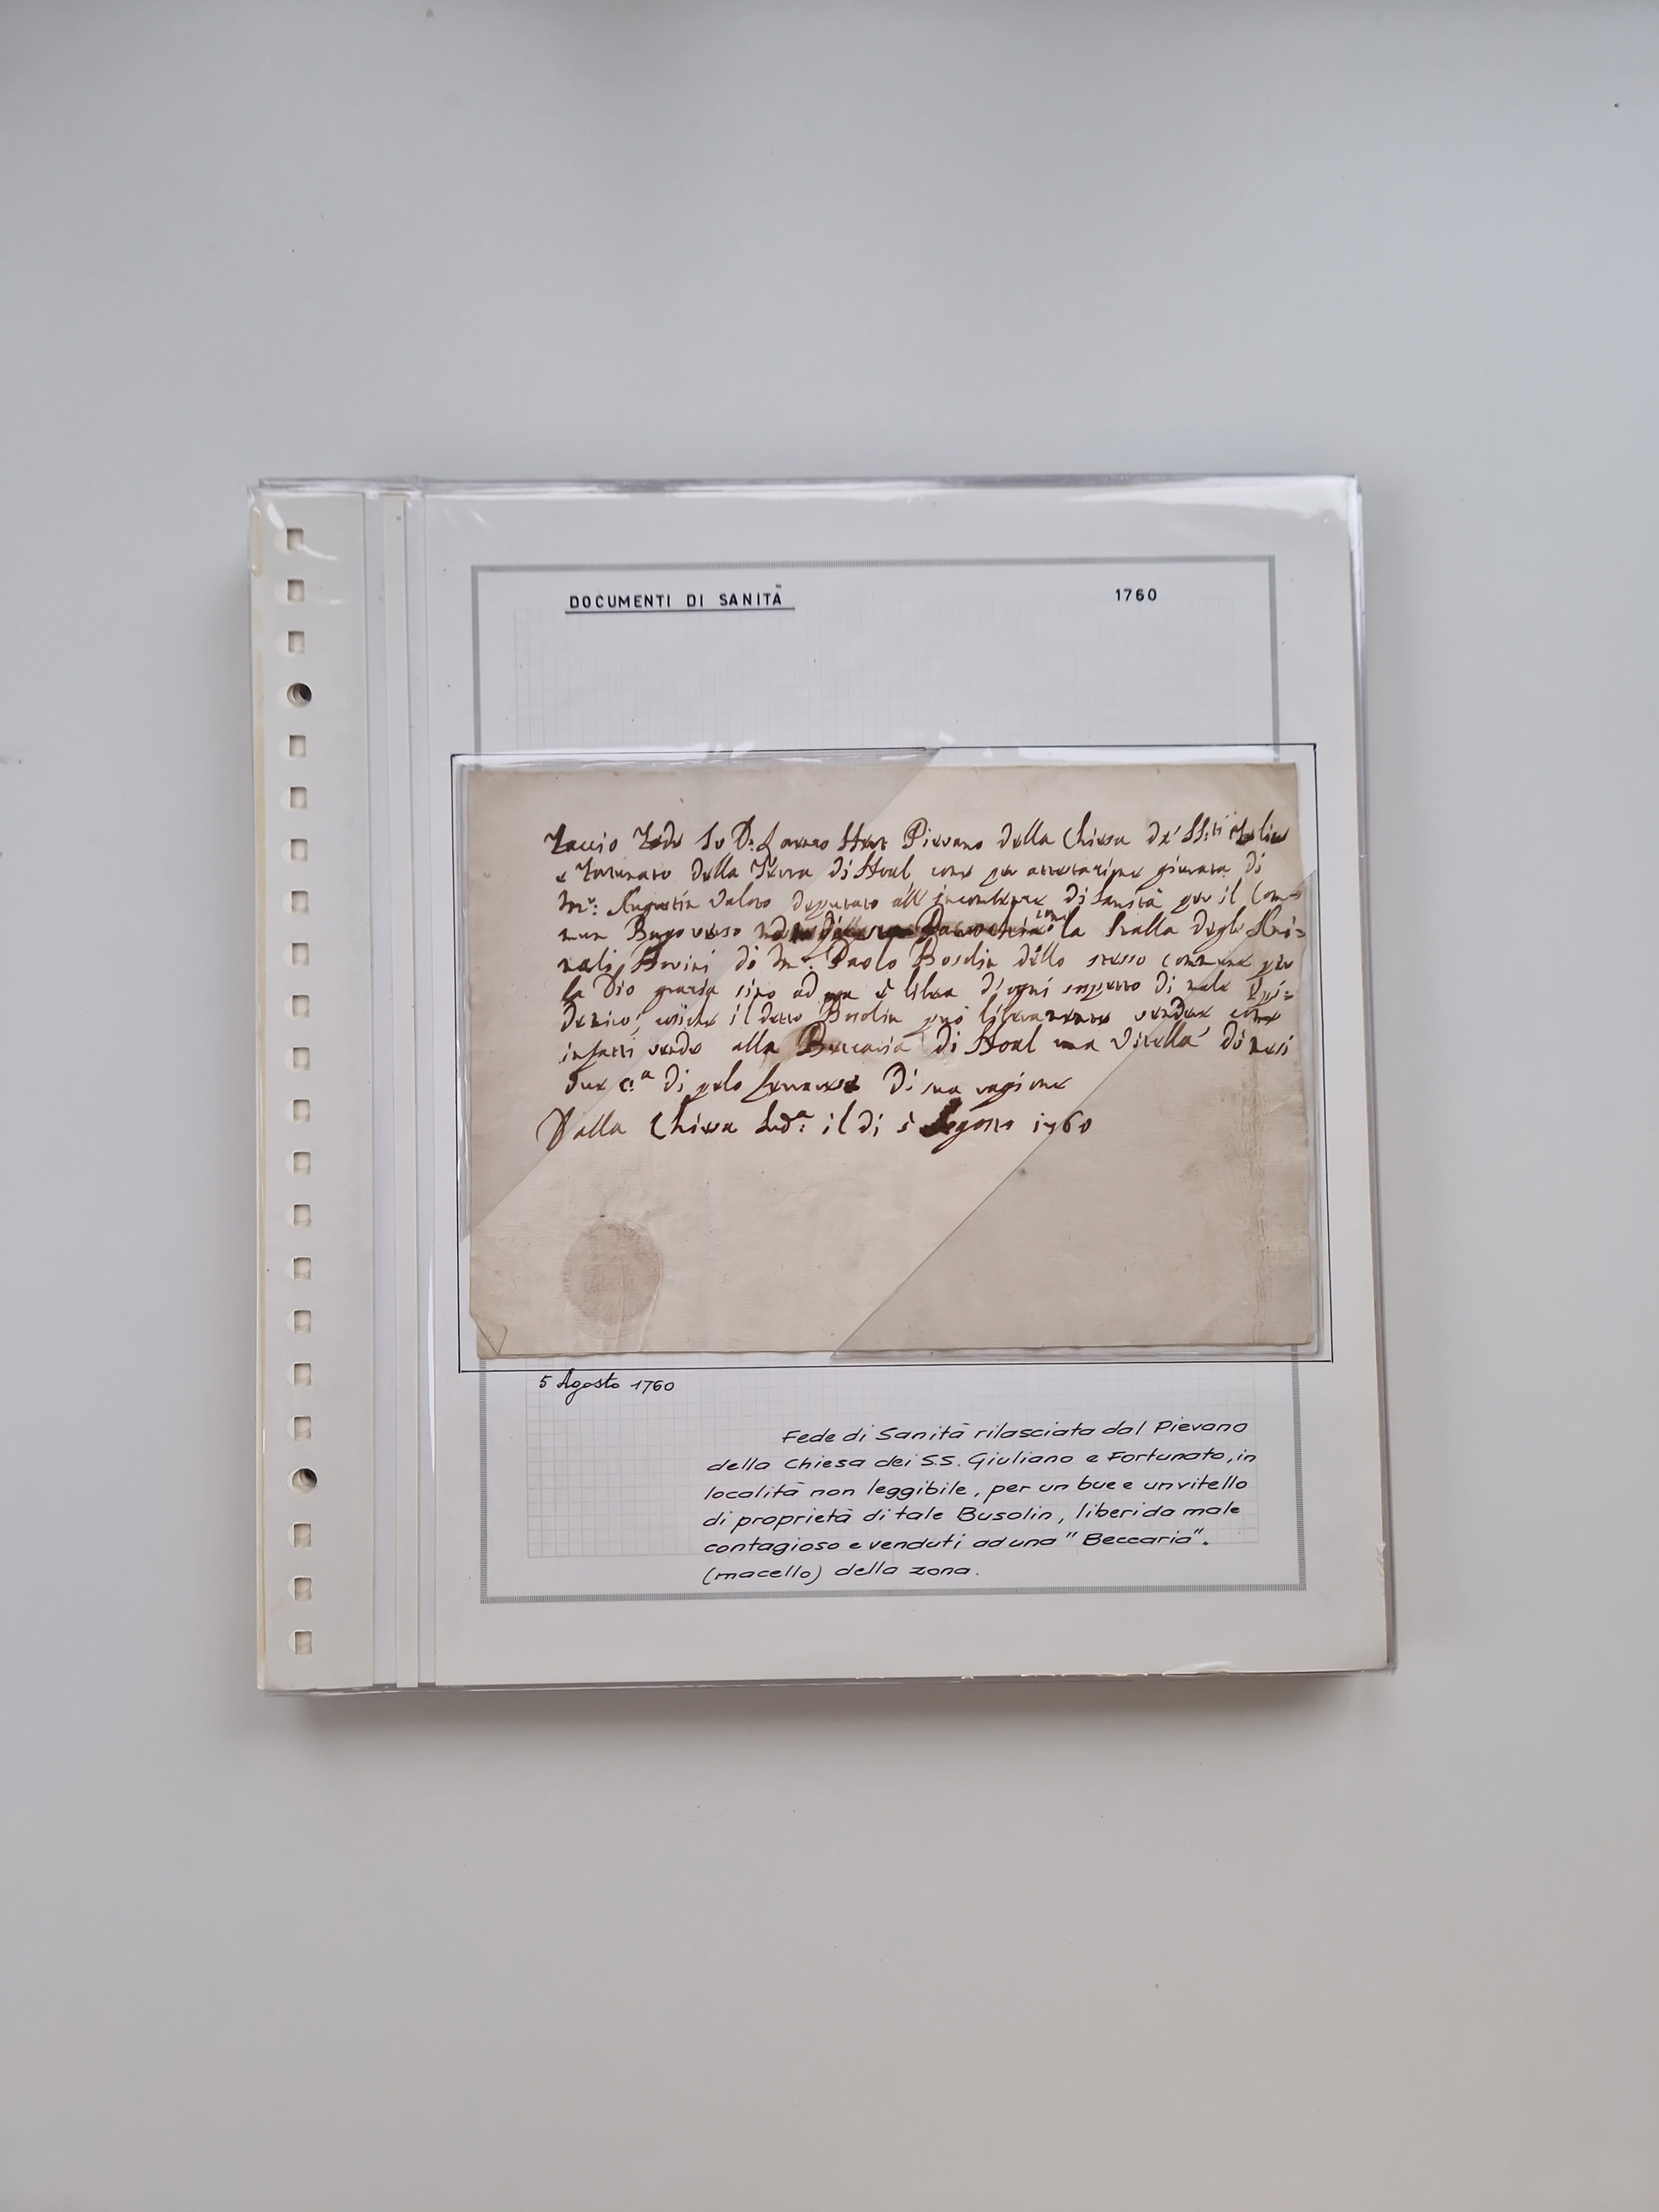 DOCUMENTI DI SANITÀ
1760
Faccio Fede Io D: Pievano della Chiesa de' SS:ti
e Fortunato della Terra di come per attestazione giurata di
Mr: Augustin Valoso deputato all' incombenze di Sanità per il Com=
mun la Stalla degli Ani=
mali Bovini di Mr: Paolo Bosolin dello stesso commune per
la Dio grazia sino ad ora è libera d'ogni sospetto di male Epi=
demico; cosiche il detto Bosolin può liberamente vendere come
infatti vende alla Beccaria di una Vitella di mesi
due c:a di pelo di sua ragione
Dalla Chiesa Sud:a il di 5 Agosto 1760
5 Agosto 1760
Fede di Sanità rilasciata dal Pievano
della Chiesa dei S.S. Giuliano e Fortunato, in
località non leggibile, per un bue e un vitello
di proprietà di tale Busolin, liberi da male
contagioso e venduti ad una "Beccaria".
(macello) della zona.